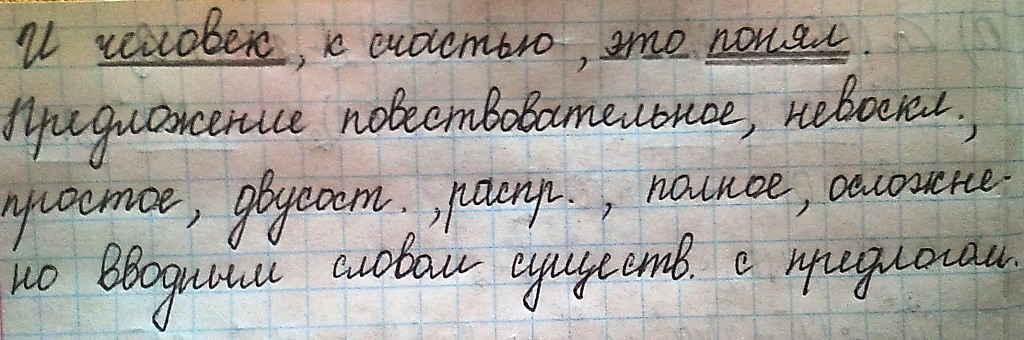 И человек, к счастью, это понял.
Предложение повествовательное, невоскл.,
простое, двусост., распр., полное, осложне-
но вводным словом существ. с предлогом.